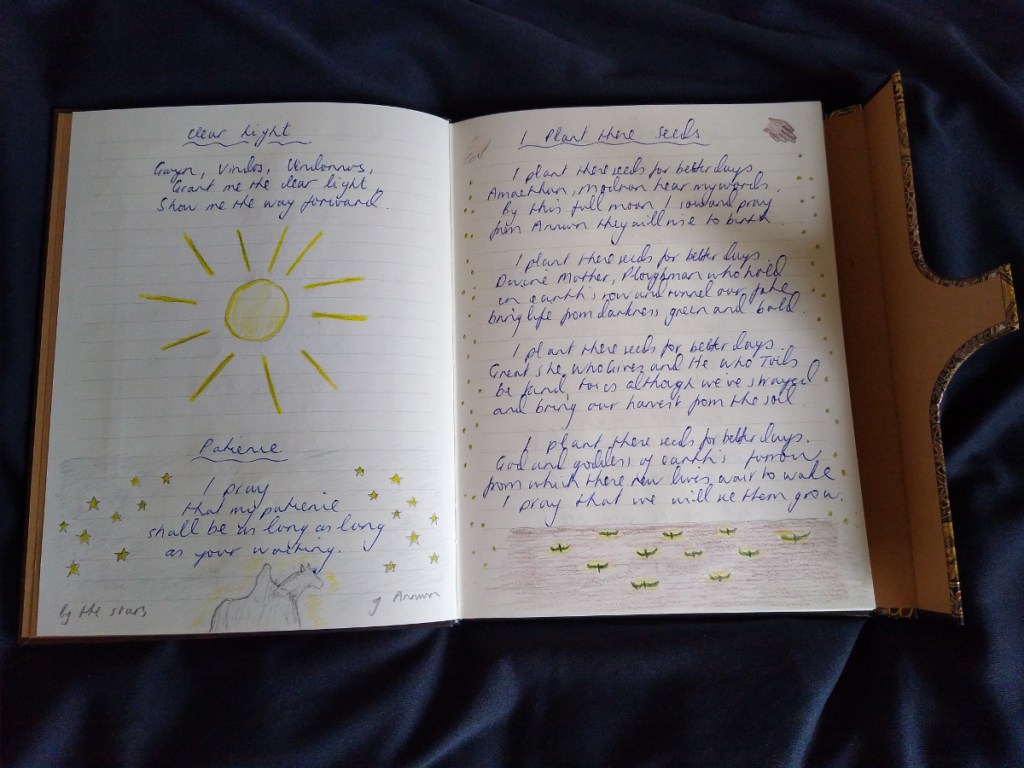 Clear Light
Gwyn, Vindos, Vindonnus,
Grant me the clear light
Show me the way forward.
Patience
I pray
that my patience
shall be as long as long
as your waiting.
by the stars
of Annwn
I Plant these Seeds
I plant these seeds for better days.
Amaethon, Modron hear my words.
By this full moon I sow and pray
from Annwn they will rise to birth.
I plant these seeds for better days.
Divine Mother, Ploughman who hold
in earth's row and runnel our fate
bring life from darkness green and bold.
I plant these seeds for better days.
Great She Who Gives and He Who Toils
be kind to us although we've strayed
and bring our harvest from the soil.
I plant these seeds for better days.
God and goddess of earth's furrow
from which these new lives wait to wake
I pray that we will see them grow.